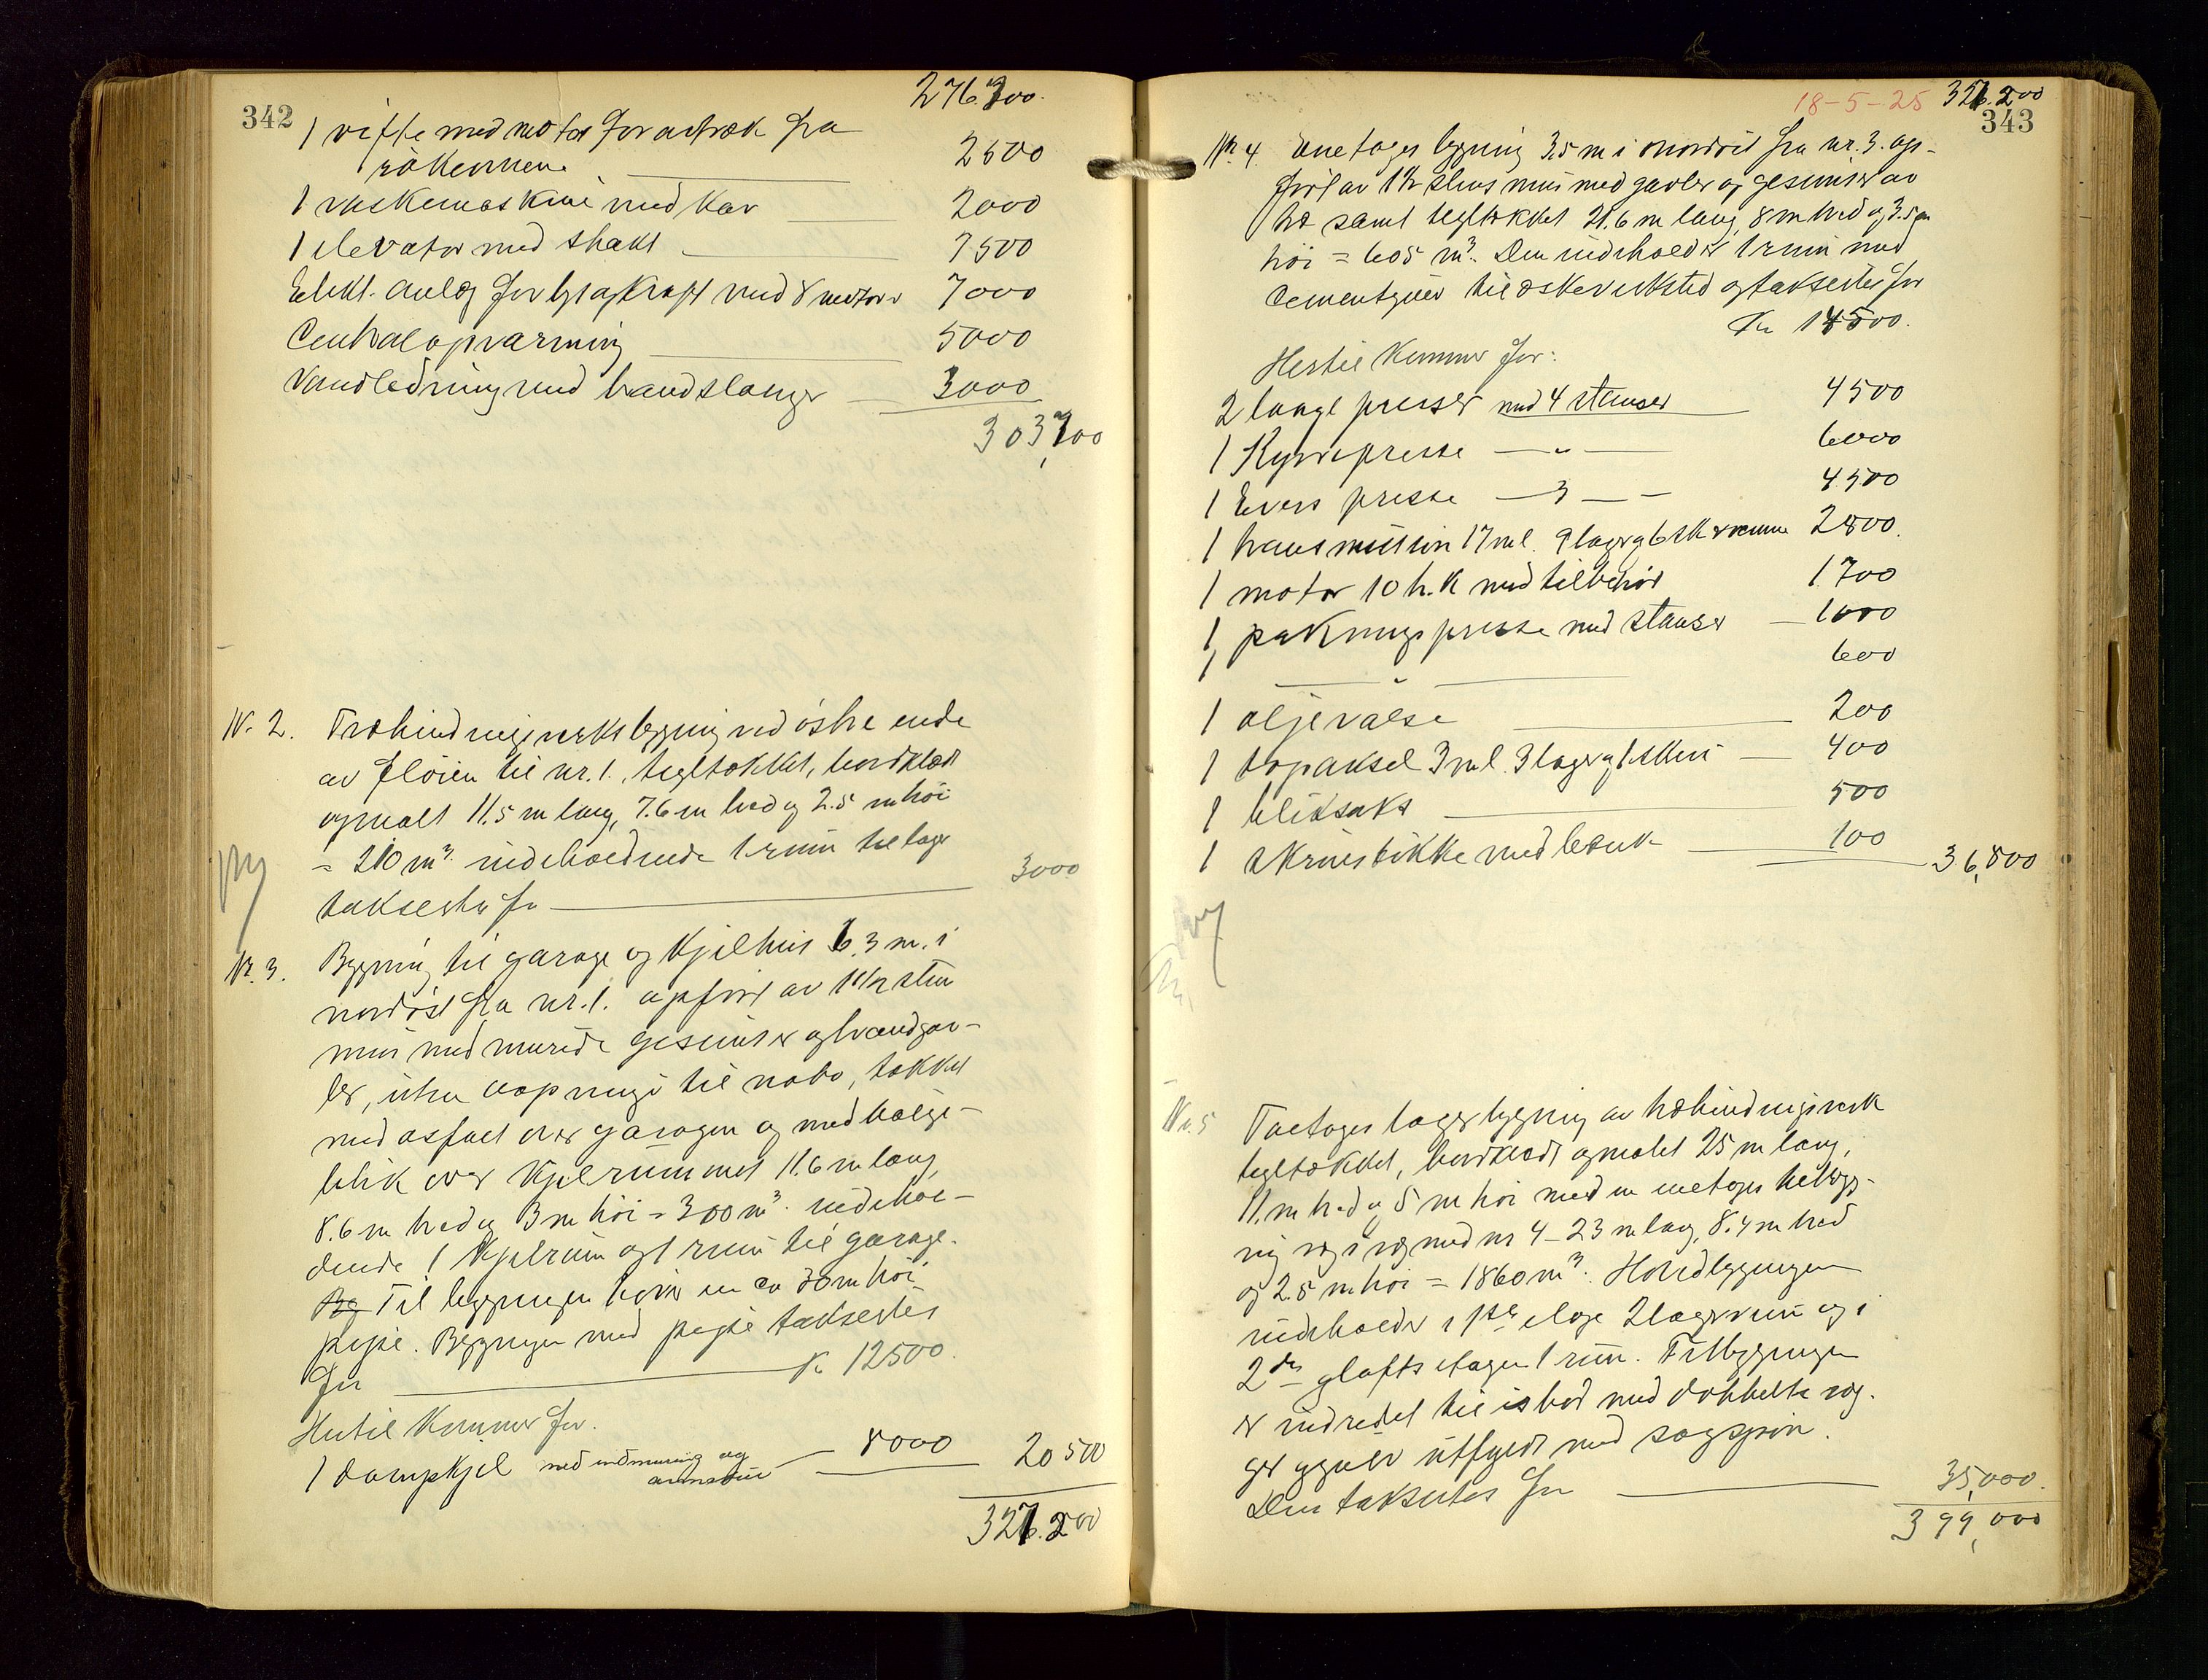 342
276.700.
1 vifte med motor for avtræk fra
rökovnene 2500
1 vaskemaskine med kar 2000
1 elevator med shakt 7500
Elekt. anlæg for lys og kraft med 8 motorer 7000
Centralopvarming 5000
Vandledning med brandslanger 3000
303,700
Nr. 2. Træbindingsverksbygning ved östre ende
av flöien til nr. 1., tegltækket, bordklædt
og malt 11.5 m lang, 7.6 m bred og 2.5 m höi
= 210 m³ indeholdende 1 rum til lager
taksertes for 3000
Nr. 3. Bygning til garage og kjelhus 6.3 m. i
nordöst fra nr. 1. opfört av 1 1/2 sten
mur med murede gesimser og brandgav-
ler, uten aapninger til nabo, tækket
med asfalt over garagen og med bölge-
blik over kjelrummet 11.6 m lang,
8.6 m bred og 3 m höi = 300 m³ indehol-
dende 1 kjelrum og 1 rum til garage.
Bg Til bygningen hörer en ca 30 m höi
pipe. Bygningen med pipe taksertes
for Kr 12500.
Hertil kommer for.
1 dampkjel med indmuring og
armatur 8000 20500
327.200
18-5-25 327.200
343
Nr. 4. Enetages bygning 3.5 m i nordöst fra nr. 3. op-
fört av 1 1/2 stens mur med gavler og gesimser av
træ samt tegltækket 21.6 m lang, 8 m bred og 3.5 m
höi = 605 m³. Den indeholder 1 rum med
Cementgulv til æskeverksted og taksertes for
Kr 14500.
Hertil kommer for:
2 lange presser med 4 stanser 4500
1 Kyrrepresse — " — 6000
1 Evers presse — 3 — — 4500
1 transmission 17 m l. 9 lager og 6 sk. remme 2800.
1 motor 10 h.k med tilbehör 1700
1 pakningspresse med stanser 1000
1 — " — 600
1 oljevalse 200
1 topaksel 3 m l. 3 lager og 1 skive 400
1 bliksaks 500
1 skruestikke med bænk 100 36,800
Nr. 5 Toetages lagerbygning av træbindingsverk
tegltækket, bordklædt og malet 25 m lang,
11. m bred og 5 m höi med en enetages tilbyg-
ning væg i væg med nr 4 – 23 m lang, 8.4 m bred
og 2.5 m höi = 1860 m³. Hovedbygningen
indeholder i 1ste etage 2 lagerrum og i
2den og lofts etagen 1 rum. Tilbygningen
er indredet til isbod med dobbelte væg-
ger og gulv utfyldt med sagspon.
Den taksertes for 35,000.
399,000